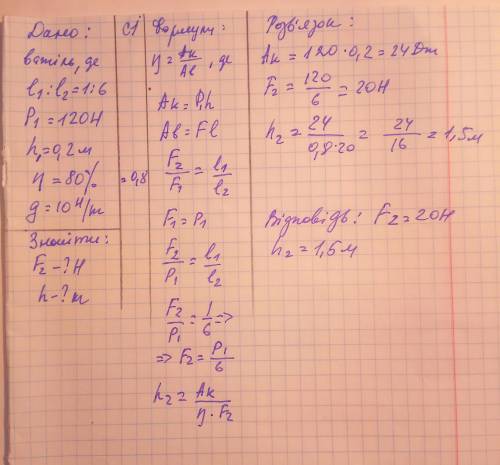 Дано:
важіль, де
l₁:l₂=1:6
P₁=120Н
h₁=0,2м
η=80% =0,8
g=10 Н/m
Знайти:
F₂-?Н
h-?m
СІ
Формули:
η=Aк/Aв, де
Aк=P₁h
Aв=Fl
F₂/F₁=l₁/l₂
F₁=P₁
F₂/P₁=l₁/l₂
F₂/P₁=1/6=>
=>F₂=P₁/6
h₂=Aк/η·F₂
Розв'язок:
Aк=120·0,2=24Дж
F₂=120/6=20Н
h₂=24/0,8·20=24/16=1,5м
Відповідь: F₂=20Н
h₂=1,5м